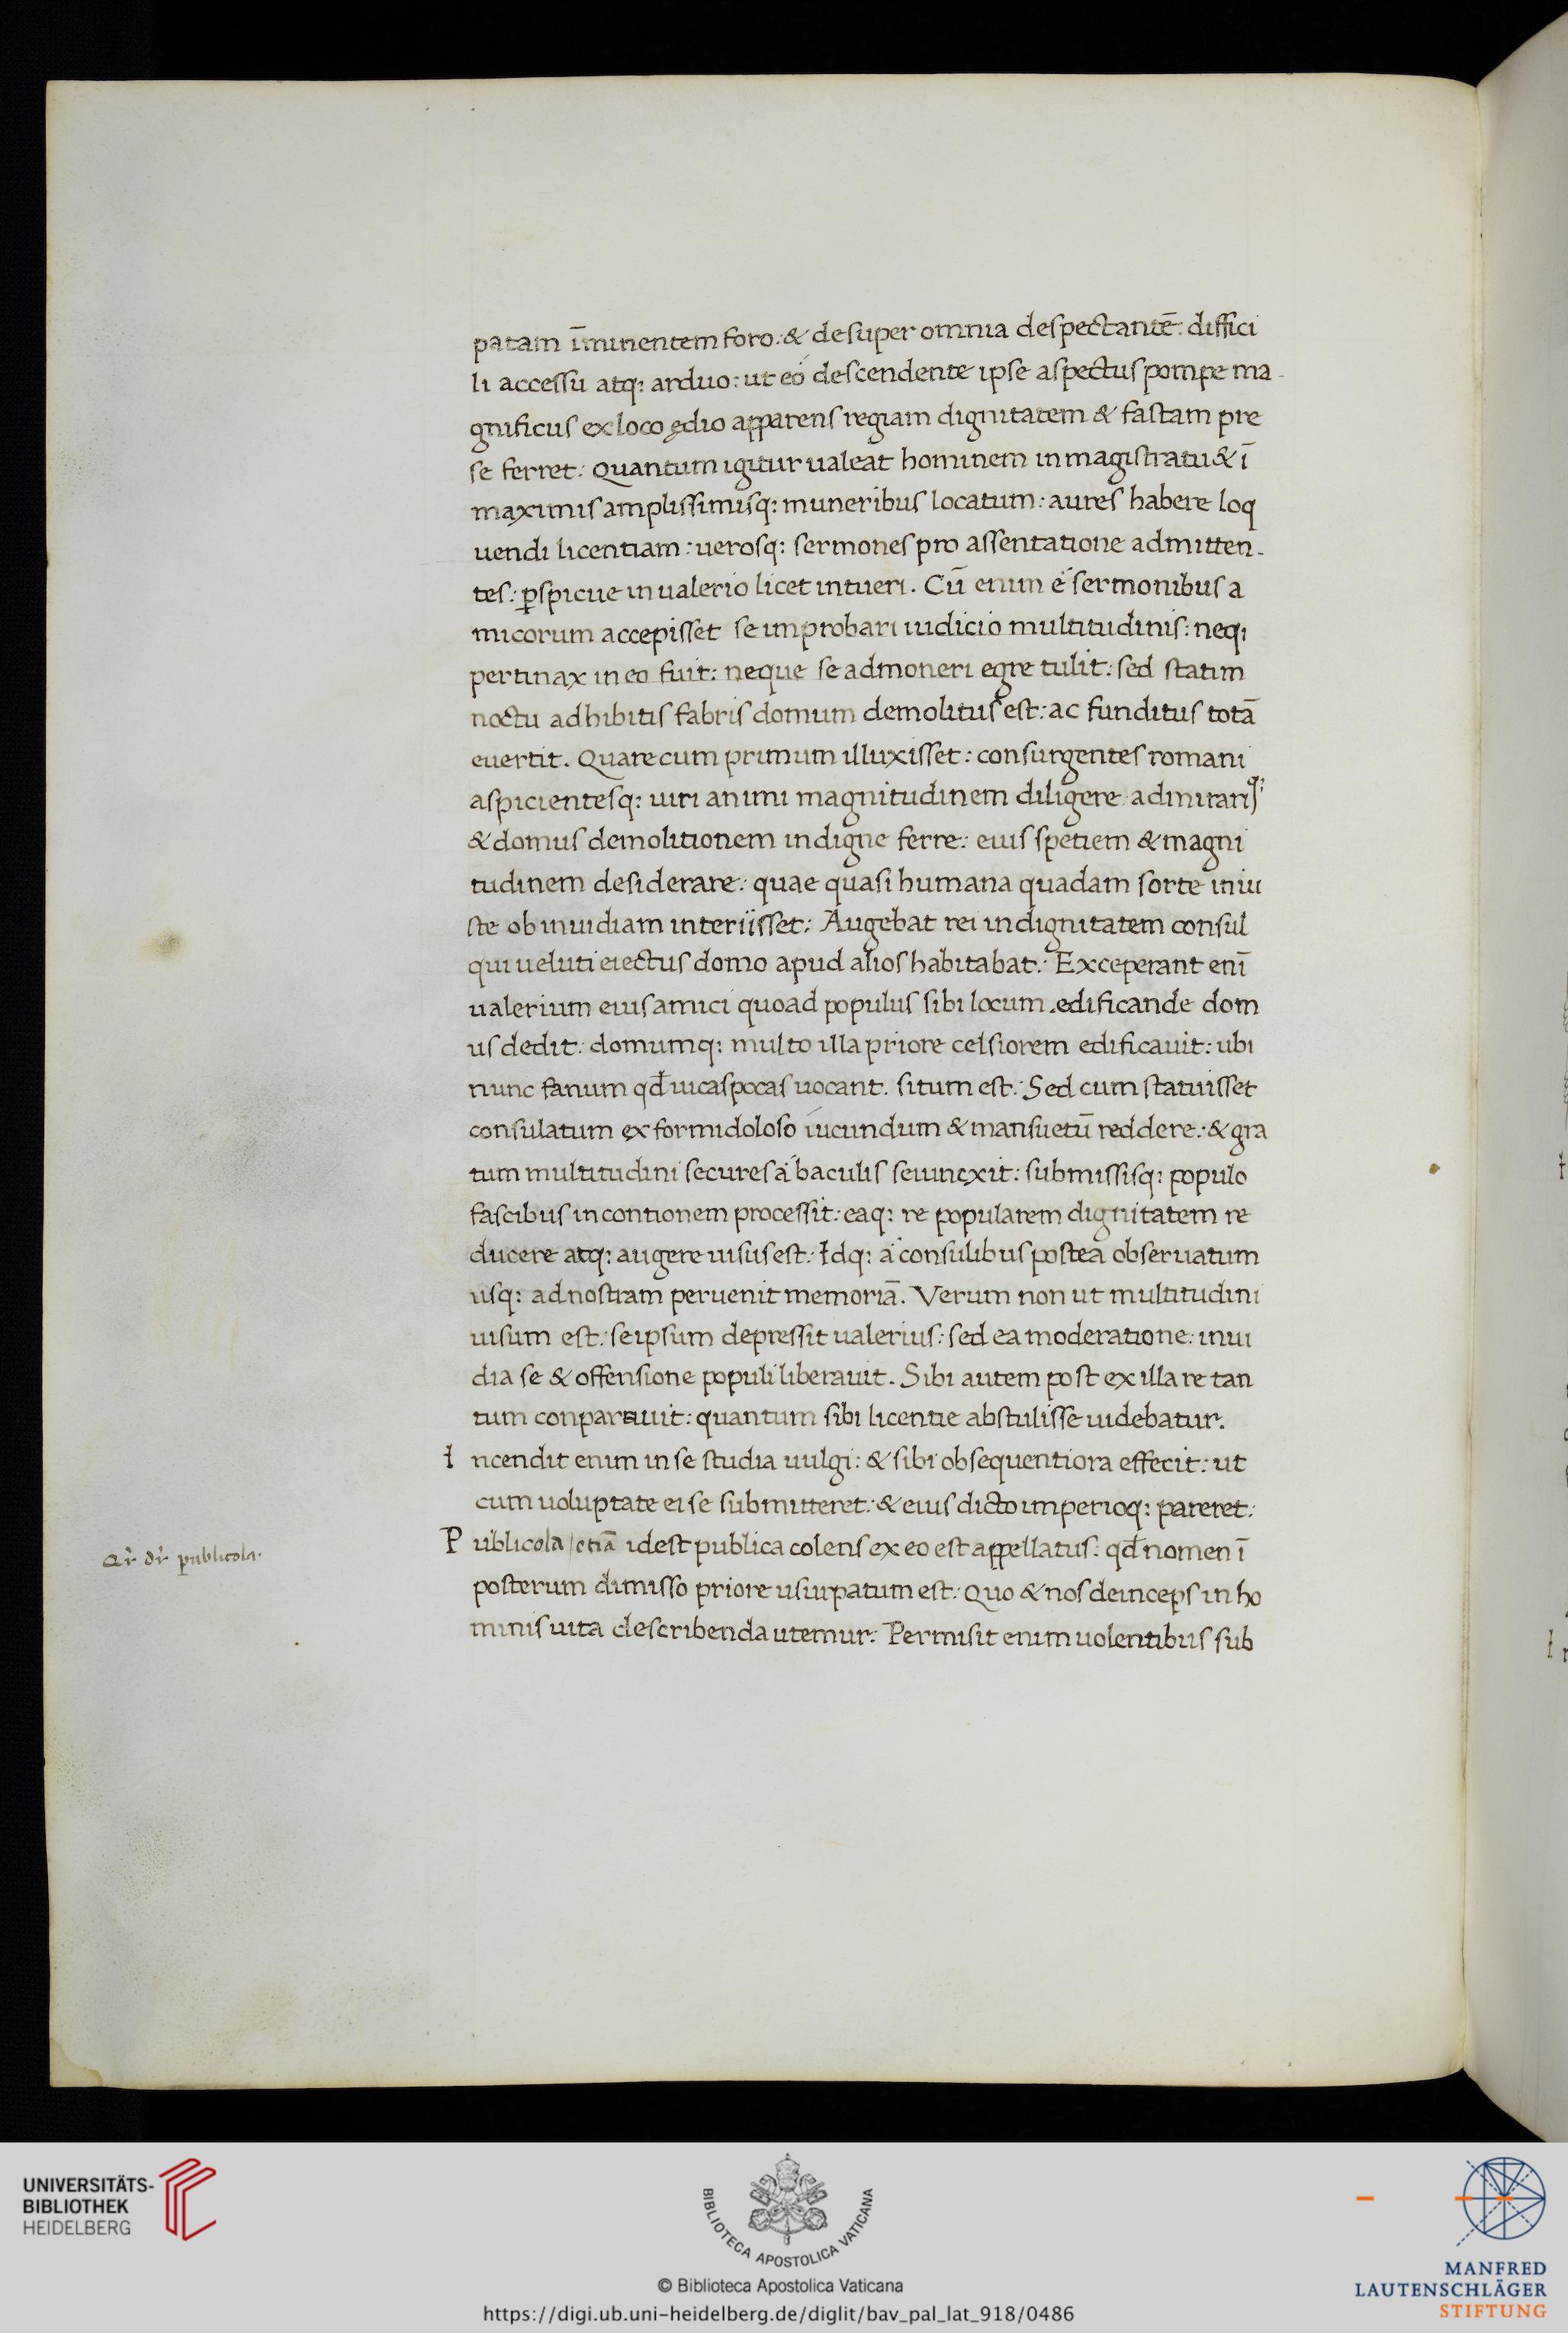 patam ı̄minentem foro: & desuper omnia despectantē: diffici
li accessu atq: arduo: ut eo descendente ipse aspectus pompe ma-
gnificus ex loco ędio apparens regiam dignitatem & fastam pre
se ferret: Quantum igitur ualeat hominem in magistratu & ī
maximis amplissimisq: muneribus locatum: aures habere loq
uendi licentiam: uerosq: sermones pro assentatione admitten-
tes: ꝑspicue in ualerio licet intueri. Cū enim é sermonibus a
micorum accepisset se improbari iudicio multitudinis: neq:
pertinax in eo fuit: neque se admoneri egre tulit: sed statim
noctu adhibitis fabris domum demolitus est: ac funditus totā
euertit. Quare cum primum illuxisset: consurgentes romani
aspicientesq: uiri animi magnitudinem diligere admirariq:
& domus demolitionem indigne ferre: eius spetiem & magni
tudinem desiderare: quae quasi humana quadam sorte iniu
ste ob inuidiam interiisset: Augebat rei indignitatem consul
qui ueluti eiectus domo apud alios habitabat: Exceperant enī
ualerium eius amici quoad populus sibi locum edificande dom
us dedit: domumq: multo illa priore celsiorem edificauit: ubi
nunc fanum qđ uicaspocas uocant. situm est: Sed cum statuisset
consulatum ex formidoloso iucundum & mansuetū reddere: & gra
tum multitudini secures á baculis seiunxit: submissisq: populo
fascibus in contionem processit: eaq: re popularem dignitatem re
ducere atq: augere uisus est: Idq: á consulibus postea obseruatum
usq: ad nostram peruenit memoriā. Verum non ut multitudini
uisum est: se ipsum depressit ualerius: sed ea moderatione: inui
dia se & offensione populi liberauit. Sibi autem post ex illa re tan
tum conparauit: quantum sibi licentie abstulisse uidebatur.
Incendit enim in se studia uulgi: & sibi obsequentiora effecit: ut
cum uoluptate ei se submitteret: & eius dicto imperioq: pareret:
Publicola etiā idest publica colens ex eo est appellatus: qđ nomen ī
posterum dimisso priore usurpatum est: Quo & nos deinceps in ho
minis uita describenda utemur: Permisit enim uolentibus sub
publicola.
UNIVERSITÄTS-
BIBLIOTHEK
HEIDELBERG
BIBLIOTECA APOSTOLICA VATICANA
© Biblioteca Apostolica Vaticana
https://digi.ub.uni-heidelberg.de/diglit/bav_pal_lat_918/0486
MANFRED
LAUTENSCHLÄGER
STIFTUNG